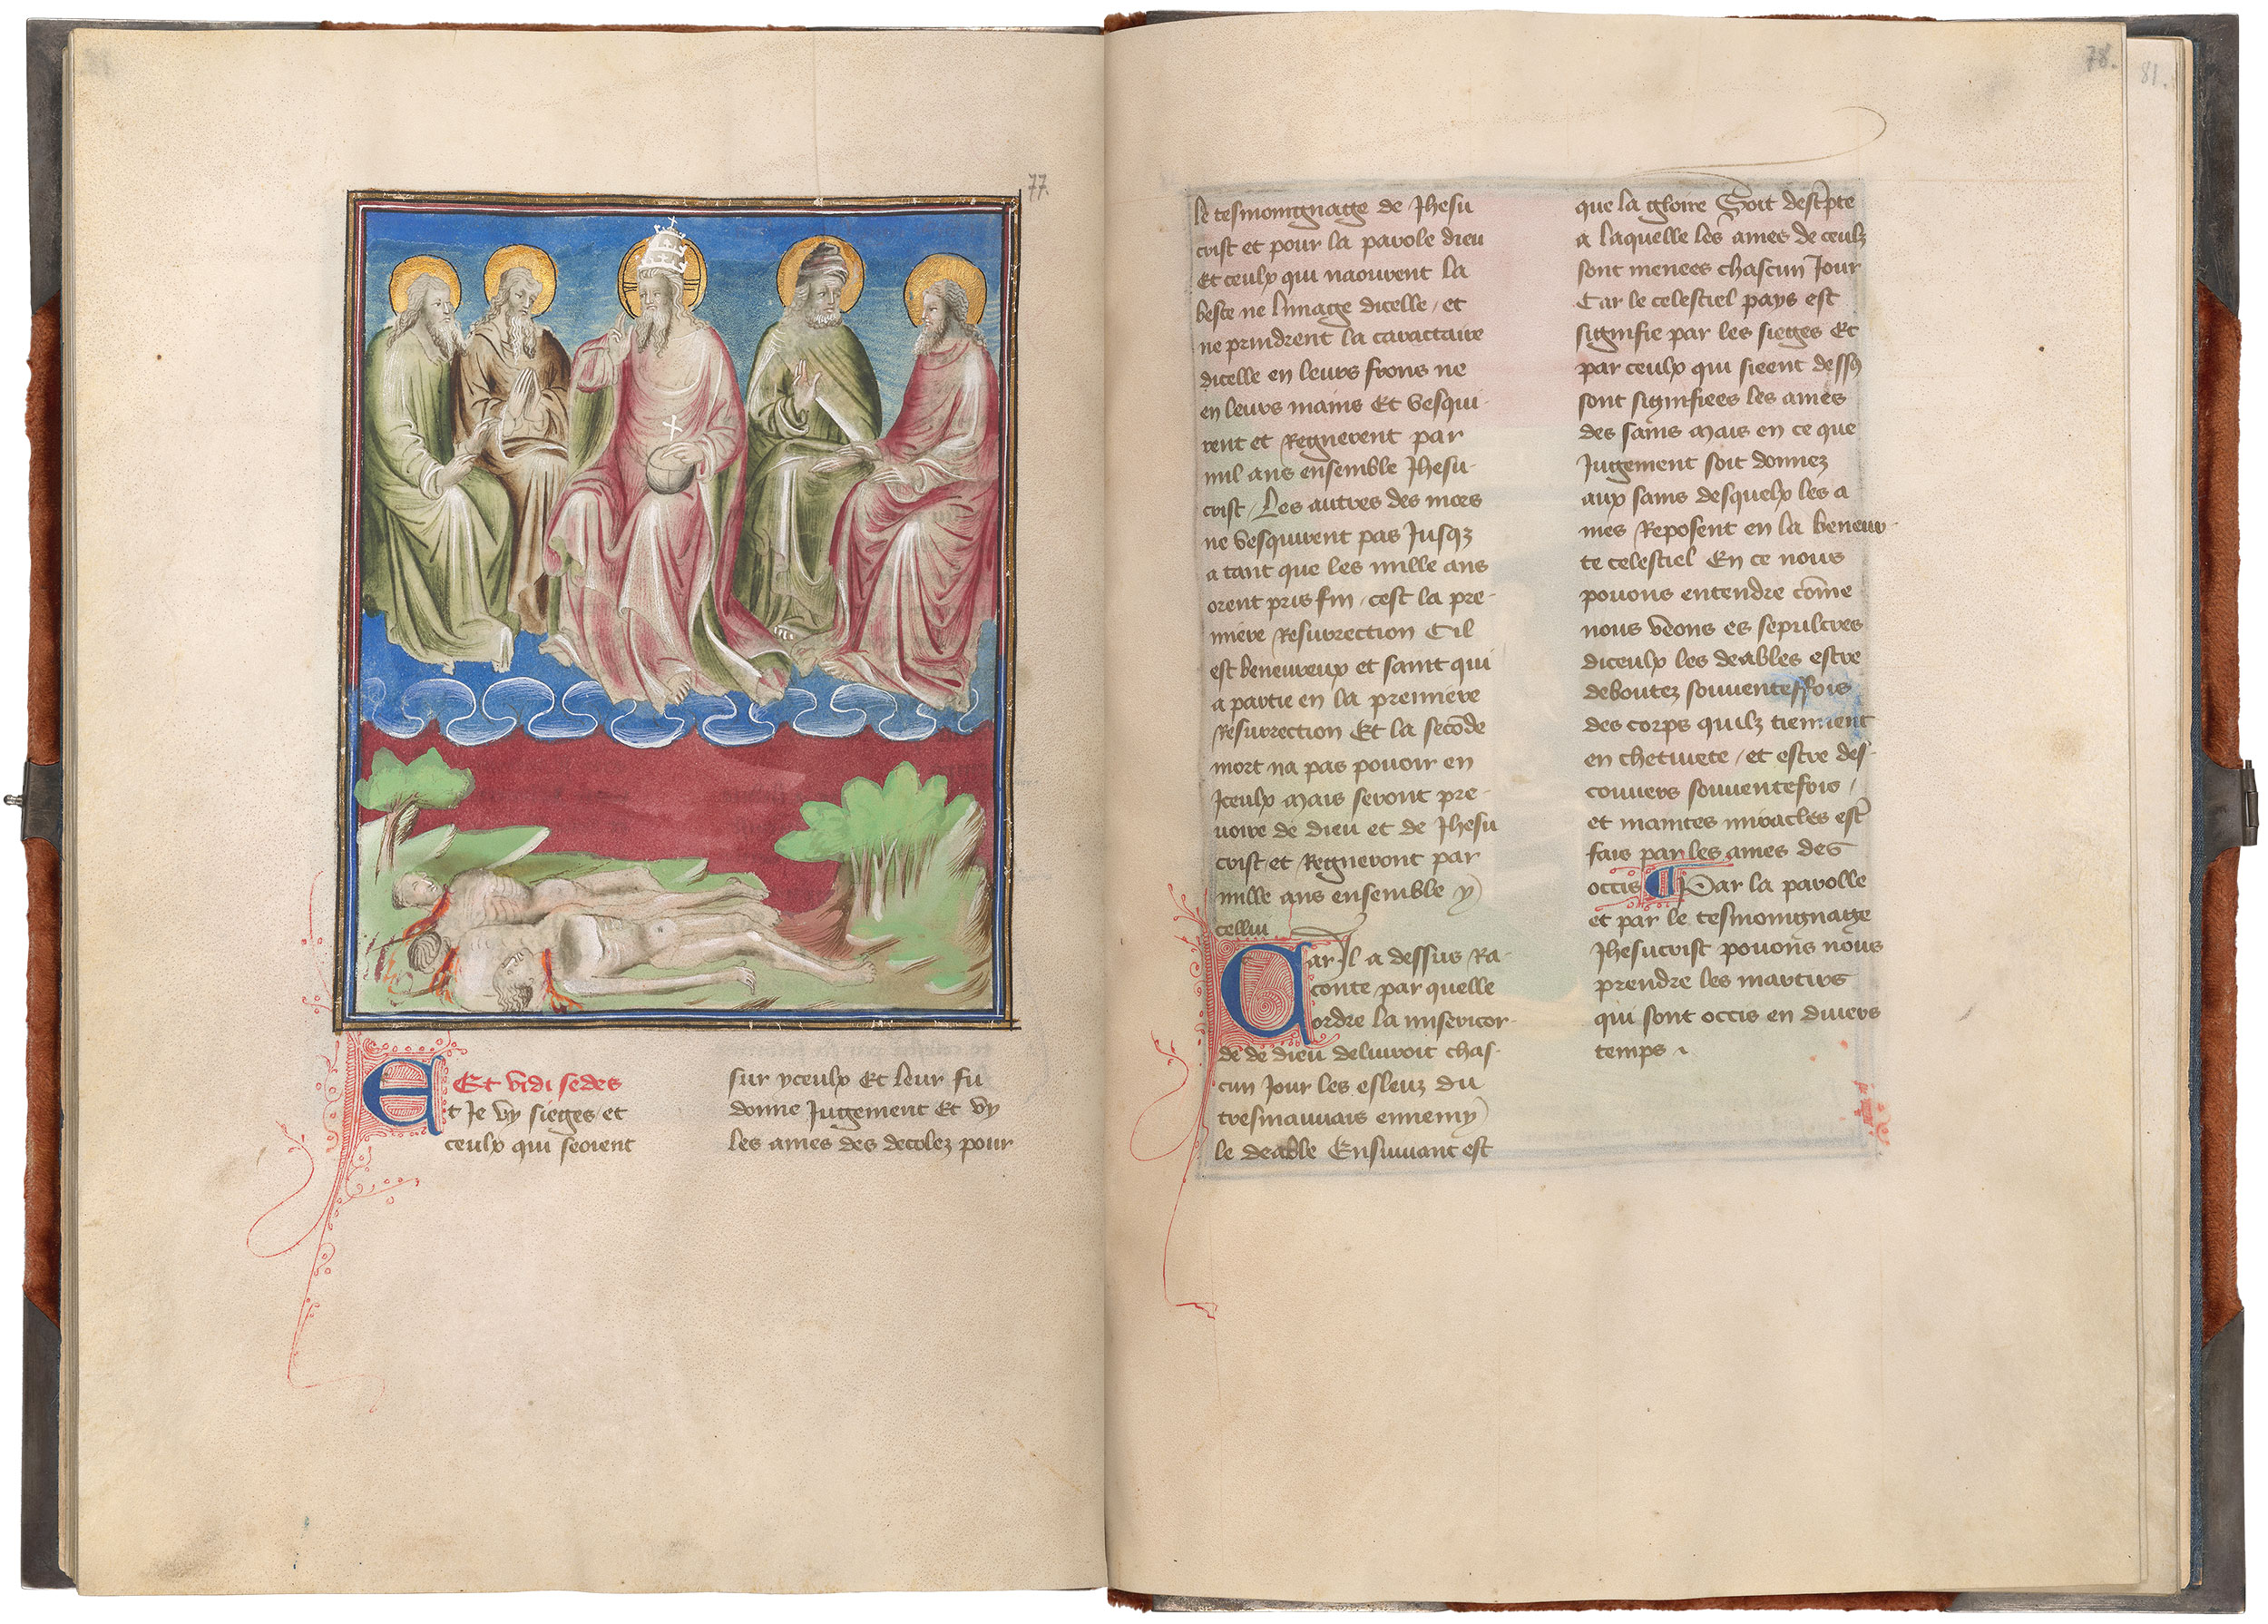 77.
Et vidi sedes
Et Je vy sieges et
ceulx qui seoient
sur yceulx Et leur fu
donne Jugement Et vy
les ames des decolez pour
78.
81.
le tesmoingnage de Jhesu
crist et pour la parole dieu
Et ceulx qui naourent la
beste ne limage dicelle / et
ne prindrent la caractaire
dicelle en leurs frons ne
en leurs mains Et vesqui-
rent et Regnerent par
mil ans ensemble Jhesu-
crist / Les autres des mors
ne vesquirent pas Jusqz
a tant que les mille ans
orent pris fin / cest la pre-
miere Resurrection Cil
est beneureux et saint qui
a partie en la premiere
Resurrection Et la secōde
mort na pas pouoir en
Jceulx Mais seront pre-
uoire de dieu et de Jhesu
crist et Regneront par
mille ans ensemble y
cellui
Car Jl a dessus Ra-
conte par quelle
ordre la misericor-
de de dieu deliuroit chas-
cun Jour les esleuz du
tresmauuais ennemy
le deable Ensuiuant est
que la gloire Soit descpte
a laquelle les ames de ceulz
sont menees chascun Jour
Car le celestiel pays est
signifie par les sieges Et
par ceulx qui sieent dess9
sont signifiees les ames
des sains Mais en ce que
Jugement soit donnez
aux sains desquelx les a
mes Reposent en la beneur-
te celestiel En ce nous
pouons entendre cōme
nous veons es sepulcres
diceulx les deables estre
deboutez souuenteffois
des corps quilz tiennent
en chetiuete / et estre des-
couuers souuentefois /
et maintes miracles est
fais par les ames des
occis Par la parolle
et par le tesmoingnage
Jhesucrist pouons nous
prendre les martirs
qui sont occis en diuers
temps